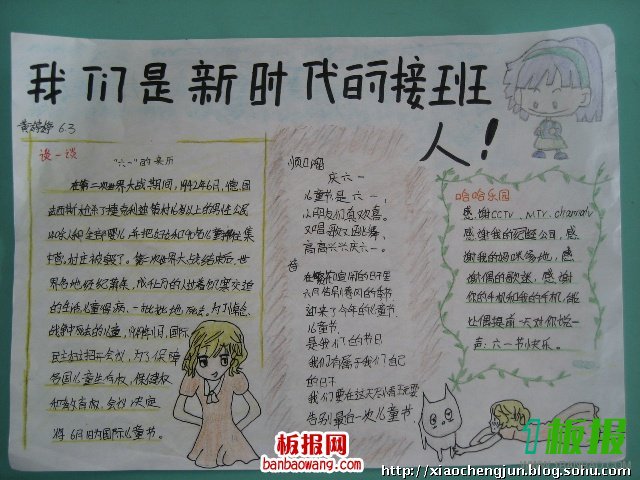 我们是新时代的接班
人！
黄婷婷 6.3
谈一谈
"六一"的来历
在第二次世界大战期间，1942年6月，德国
法西斯
16岁以上的男性公民
140人和全部婴儿，并把妇女和
集
中营。村庄
第二次世界大战结束后，世
界各地经济萧条，成千上万的
的生活，儿童得病、一批批地死去。为了悼念
战争中死去的儿童，1949年11月，国际
民主妇
会议，为了保障
各国儿童生存权，保健权
和教育权，会议决定
将6月1日为国际儿童节。
顺口溜
庆六一
儿童节是六一，
小朋友们真欢喜。
又唱歌又
高高兴兴庆六一。
诗
在
的日子里
六月
的季节
迎来了今年的儿童节
儿童节
是我们的节日
我们有属于我们自己
的日子
我们要在这天
告别最后一次儿童节
哈哈乐园
感谢CCTV、MTV、channelV
感谢我的
公司，感
谢我的妈咪爹地，感
谢偶的歌迷，感谢
你的手机和我的手机，能
让偶提前一天对你说一
声：六一节快乐。
板报网
banbaowang.com
1板报
http://xiaochengjun.blog.sohu.com